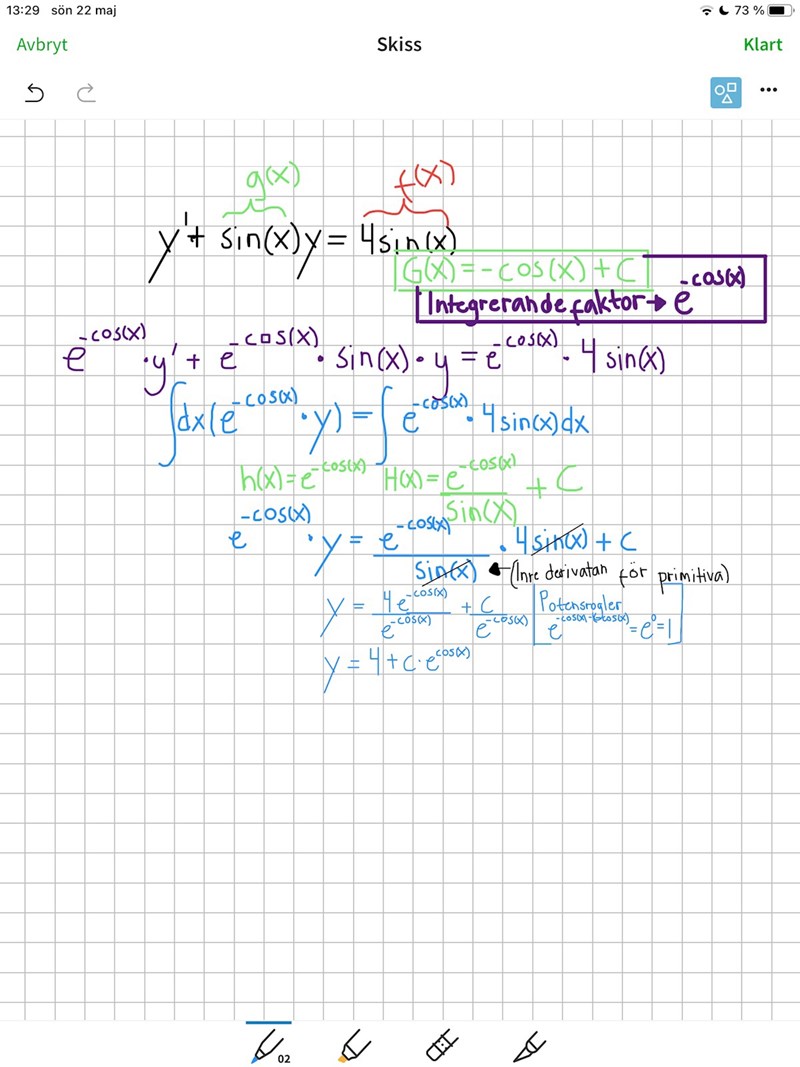 13:29 sön 22 maj 73 %
Avbryt Skiss Klart
g(x) f(x)
y' + sin(x) y = 4sin(x)
G(x) = -cos(x) + C
Integrerande faktor → e^-cos(x)
e^-cos(x) · y' + e^-cos(x) · sin(x) · y = e^-cos(x) · 4 sin(x)
∫dx(e^-cos(x) · y) = ∫ e^-cos(x) · 4sin(x)dx
h(x) = e^-cos(x) H(x) = e^-cos(x) / sin(x) + C
e^-cos(x) · y = e^-cos(x) / sin(x) · 4sin(x) + C
← (Inre derivatan för primitiva)
y = 4e^-cos(x) / e^-cos(x) + C / e^-cos(x)
Potensregler
= e^0 = 1
y = 4 + C · e^cos(x)
02